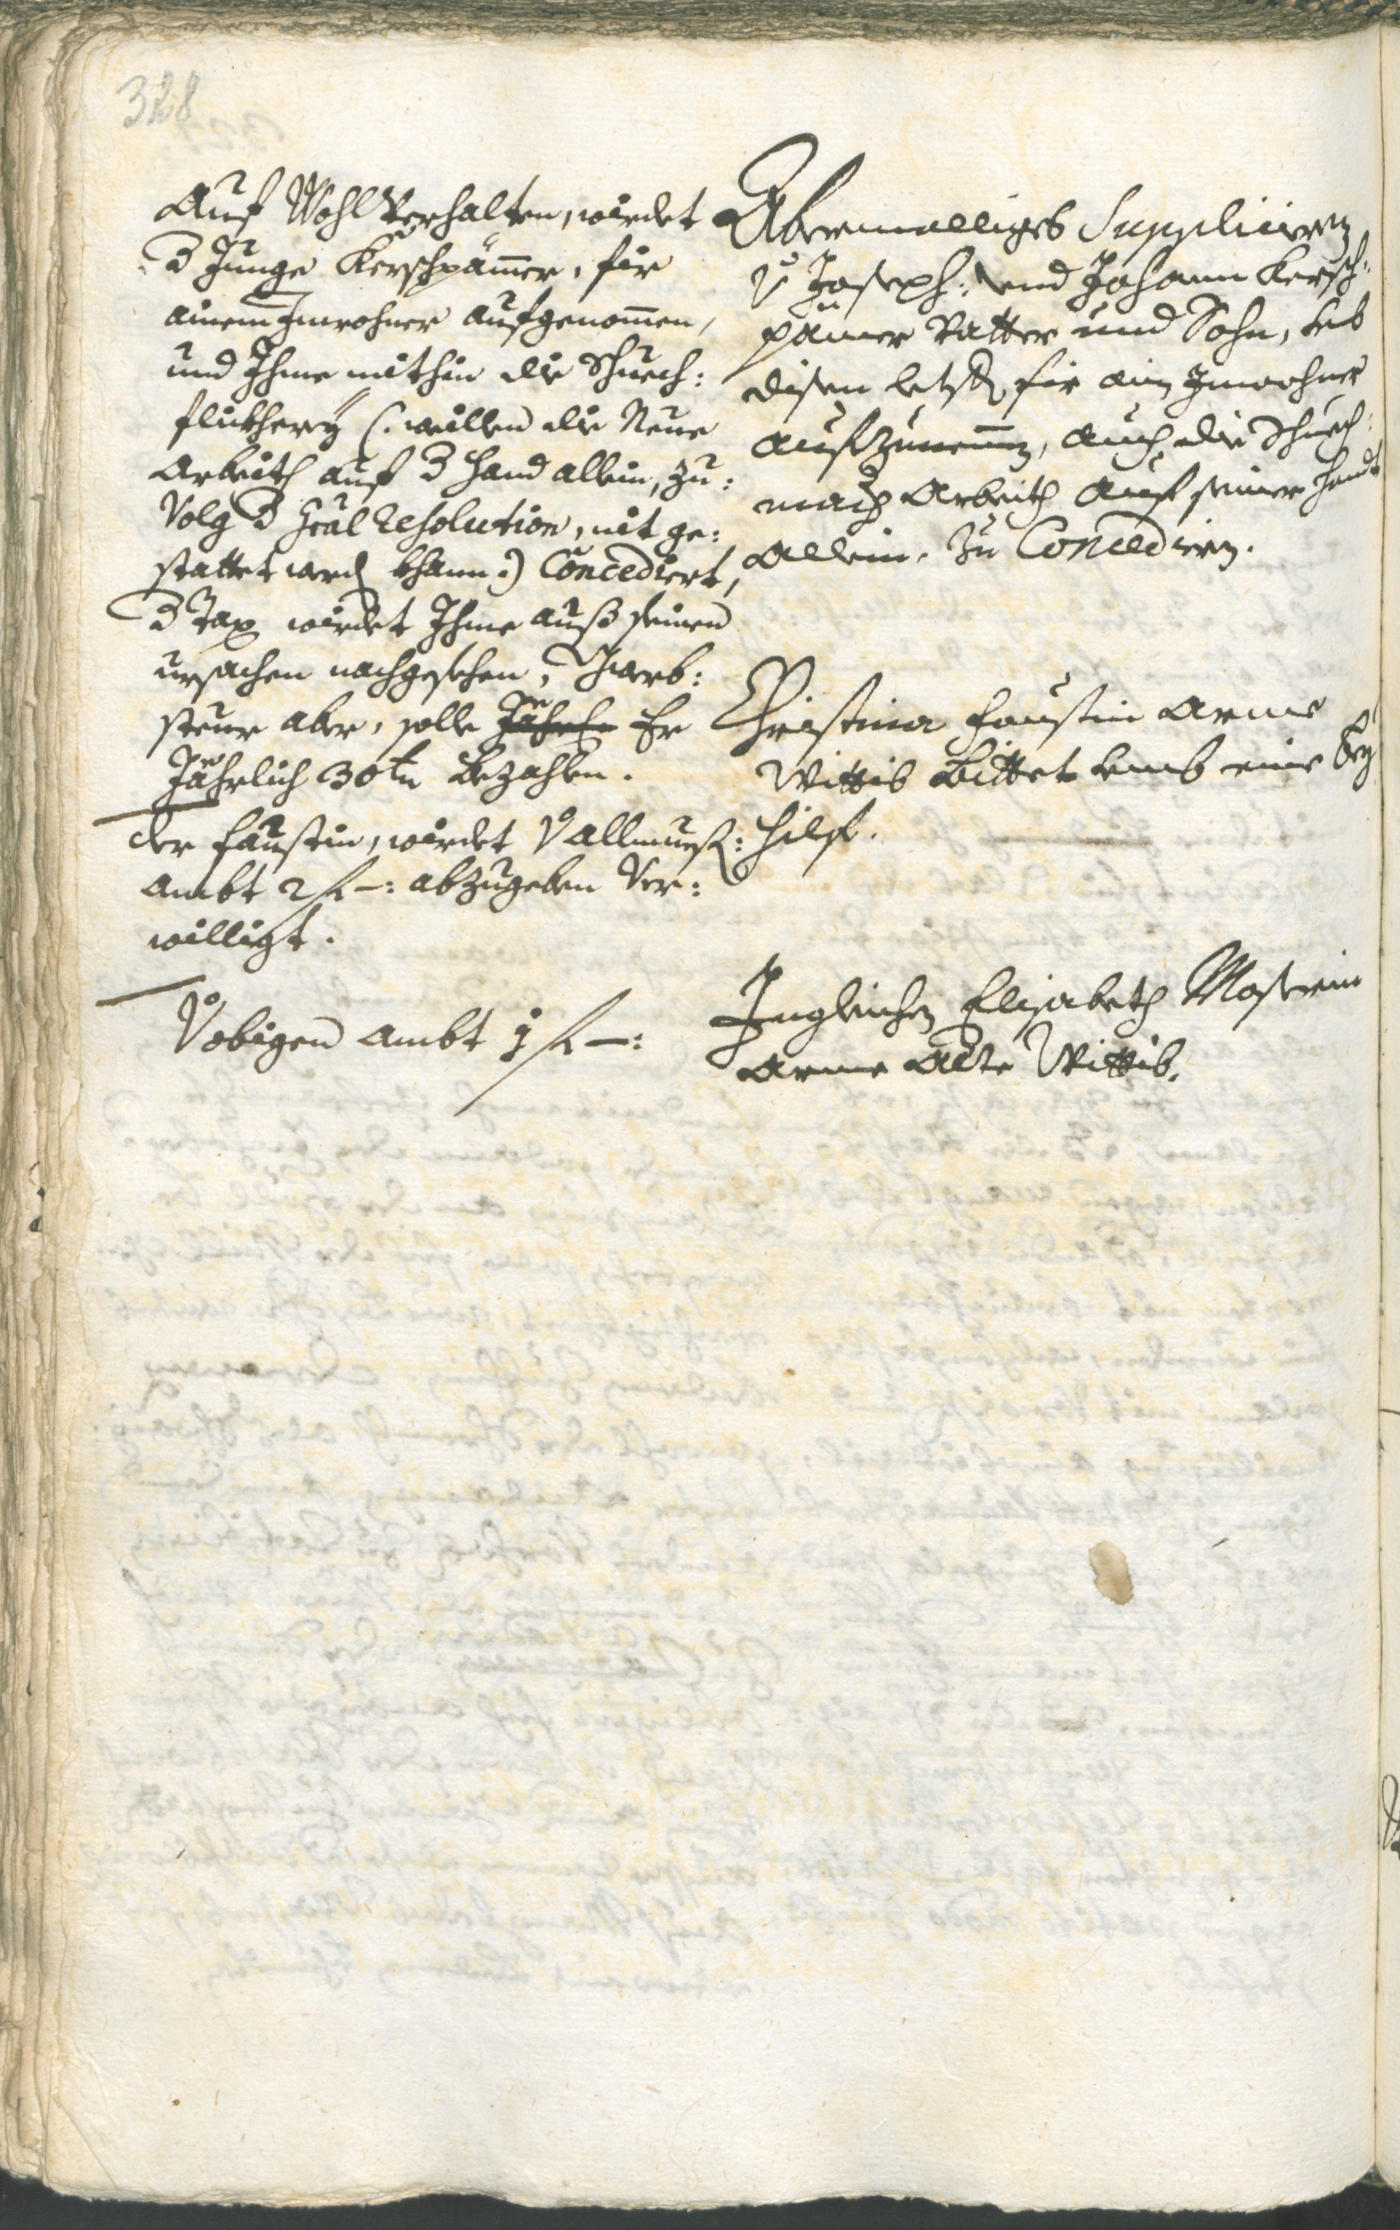 328
Auf Wohlverhalten, wirdet
d Junge Kerschpämer, für
ainem Inwohner aufgenomen,
und Ihme mithin die Schuech:
flickherey (: weillen die Neue
Arbeith auf d Hand allein, zu:
Volg d Resolution, nit ge:
stattet werd khann :) Concediert,
d Tax wirdet Ihme auß seinen
ursachen nachgesehen,
steur aber, solle Jährl Er
Jährlich 30 bezahlen.
der Faustin, wirdet v Allmueß:
Ambt 2 f –: abzugeben Ver:
willigt.
V obigen Ambt 1 f –:
Abermalliges Supplicieren
v Joseph: und Johann Kersch:
pämer Vatter und Sohn, umb
disen letst für ain Inwohner
aufzunemen, auch die Schuech:
mach Arbeith auf seiner Handt
allein, zu Concedieren.
Christina Faustin arme
Wittib bittet umb eine Bey
hilf.
Ingleichen Elisabeth Mosserin
arme alte Wittib.